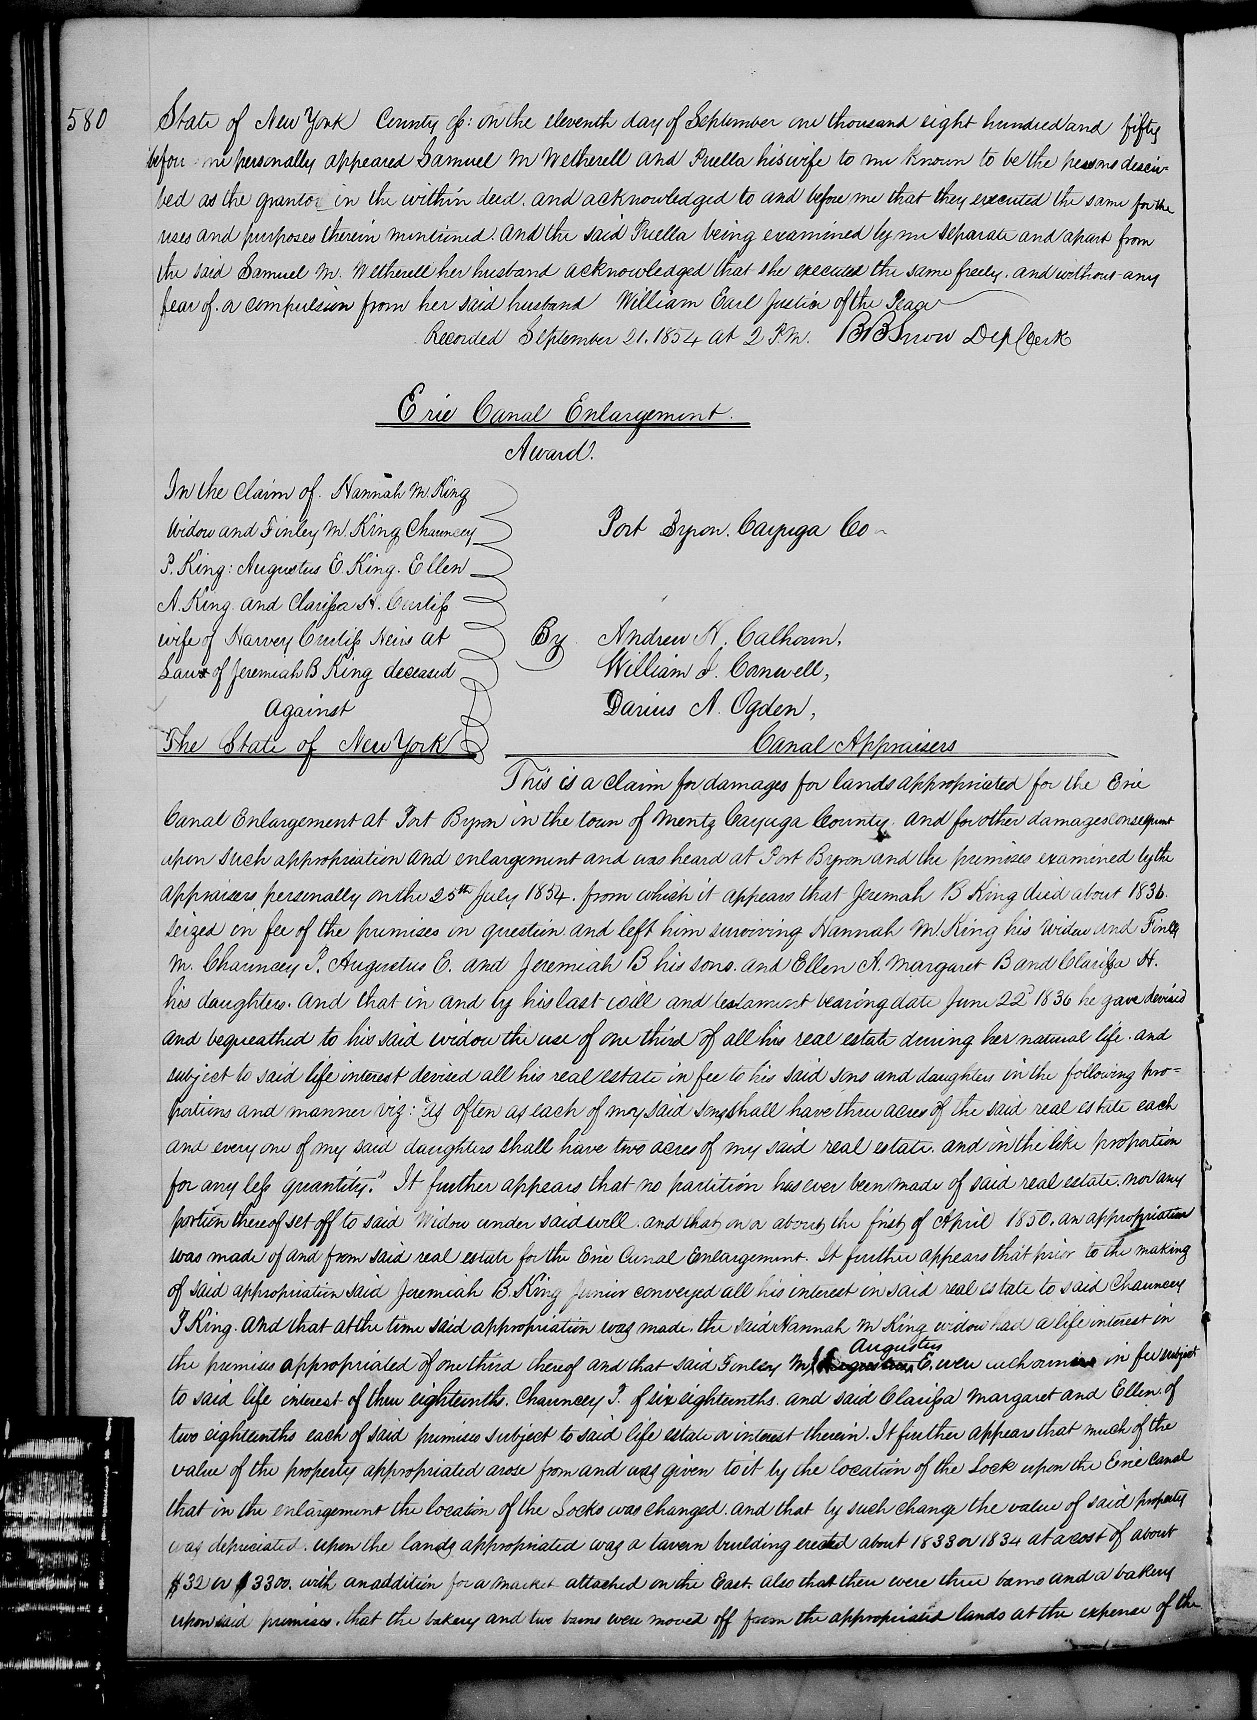 580
State of New York County ss: on the eleventh day of September one thousand eight hundred and fifty
before me personally appeared Samuel M Wetherell and Priella his wife to me known to be the persons descri-
bed as the grantor in the within deed. and acknowledged to and before me that they executed the same for the
uses and purposes therein mentioned. And the said Priella being examined by me separate and apart from
the said Samuel M. Wetherell her husband acknowledged that she executed the same freely. and without any
fear of. or compulsion from her said husband William Earl Justice of the Peace
Recorded September 21. 1854 at 2 P.M. B B Snow Dep Clerk
Erie Canal Enlargement.
Award.
In the Claim of. Hannah M. King
Widow and Finley M. King Chauncey
P. King: Augustus E King. Ellen
A. King. and Clarissa H. Curtiss
wife of Harvey Curtiss Heirs at
Law of Jeremiah B King deceased
Against
The State of New York
Port Byron. Cayuga Co
By Andrew H. Calhoun,
William J. Cornwell,
Darius A. Ogden,
Canal Appraisers
This is a claim for damages for lands appropriated for the Erie
Canal Enlargement at Port Byron in the town of Mentz Cayuga County. and for other damages consequent
upon such appropriation and enlargement and was heard at Port Byron and the premises examined by the
appraisers personally on the 25th July 1854. from which it appears that Jeremiah B King died about 1836.
seized in fee of the premises in question and left him surviving Hannah M King his Widow and Finley
M. Chauncey P. Augustus E. and Jeremiah B his sons. and Ellen A. Margaret B and Clarissa H.
his daughters. And that in and by his last will and testament bearing date June 22d 1836 he gave devised
and bequeathed to his said widow the use of one third of all his real estate during her natural life. and
subject to said life interest devised all his real estate in fee to his said sons and daughters in the following pro=
portions and manner viz: "As often as each of my said sons shall have three acres of the said real estate each
and every one of my said daughters shall have two acres of my said real estate. and in the like proportion
for any less quantity." It further appears that no partition has ever been made of said real estate. nor any
portion thereof set off to said Widow under said will. and that on or about the first of April 1850. an appropriation
was made of and from said real estate for the Erie Canal Enlargement. It further appears that prior to the making
of said appropriation said Jeremiah B. King Junior conveyed all his interest in said real estate to said Chauncey
P King. And that at the time said appropriation was made. the said Hannah M King widow had a life interest in
the premises appropriated of one third thereof and that said Finley M. Augustus E. were each owners in fee subject
to said life interest of three eighteenths. Chauncey P. of six eighteenths. and said Clarissa Margaret and Ellen. of
two eighteenths each of said premises subject to said life estate or interest therein. It further appears that much of the
value of the property appropriated arose from and was given to it by the location of the Lock upon the Erie Canal
that in the enlargement the location of the Locks was changed. and that by such change the value of said property
was depreciated. upon the lands appropriated was a tavern building erected about 1833 or 1834 at a cost of about
$32 or $3300. with an addition for a market attached on the East. also that there were three barns and a bakery
upon said premises. that the bakery and two barns were moved off from the appropriated lands at the expense of the